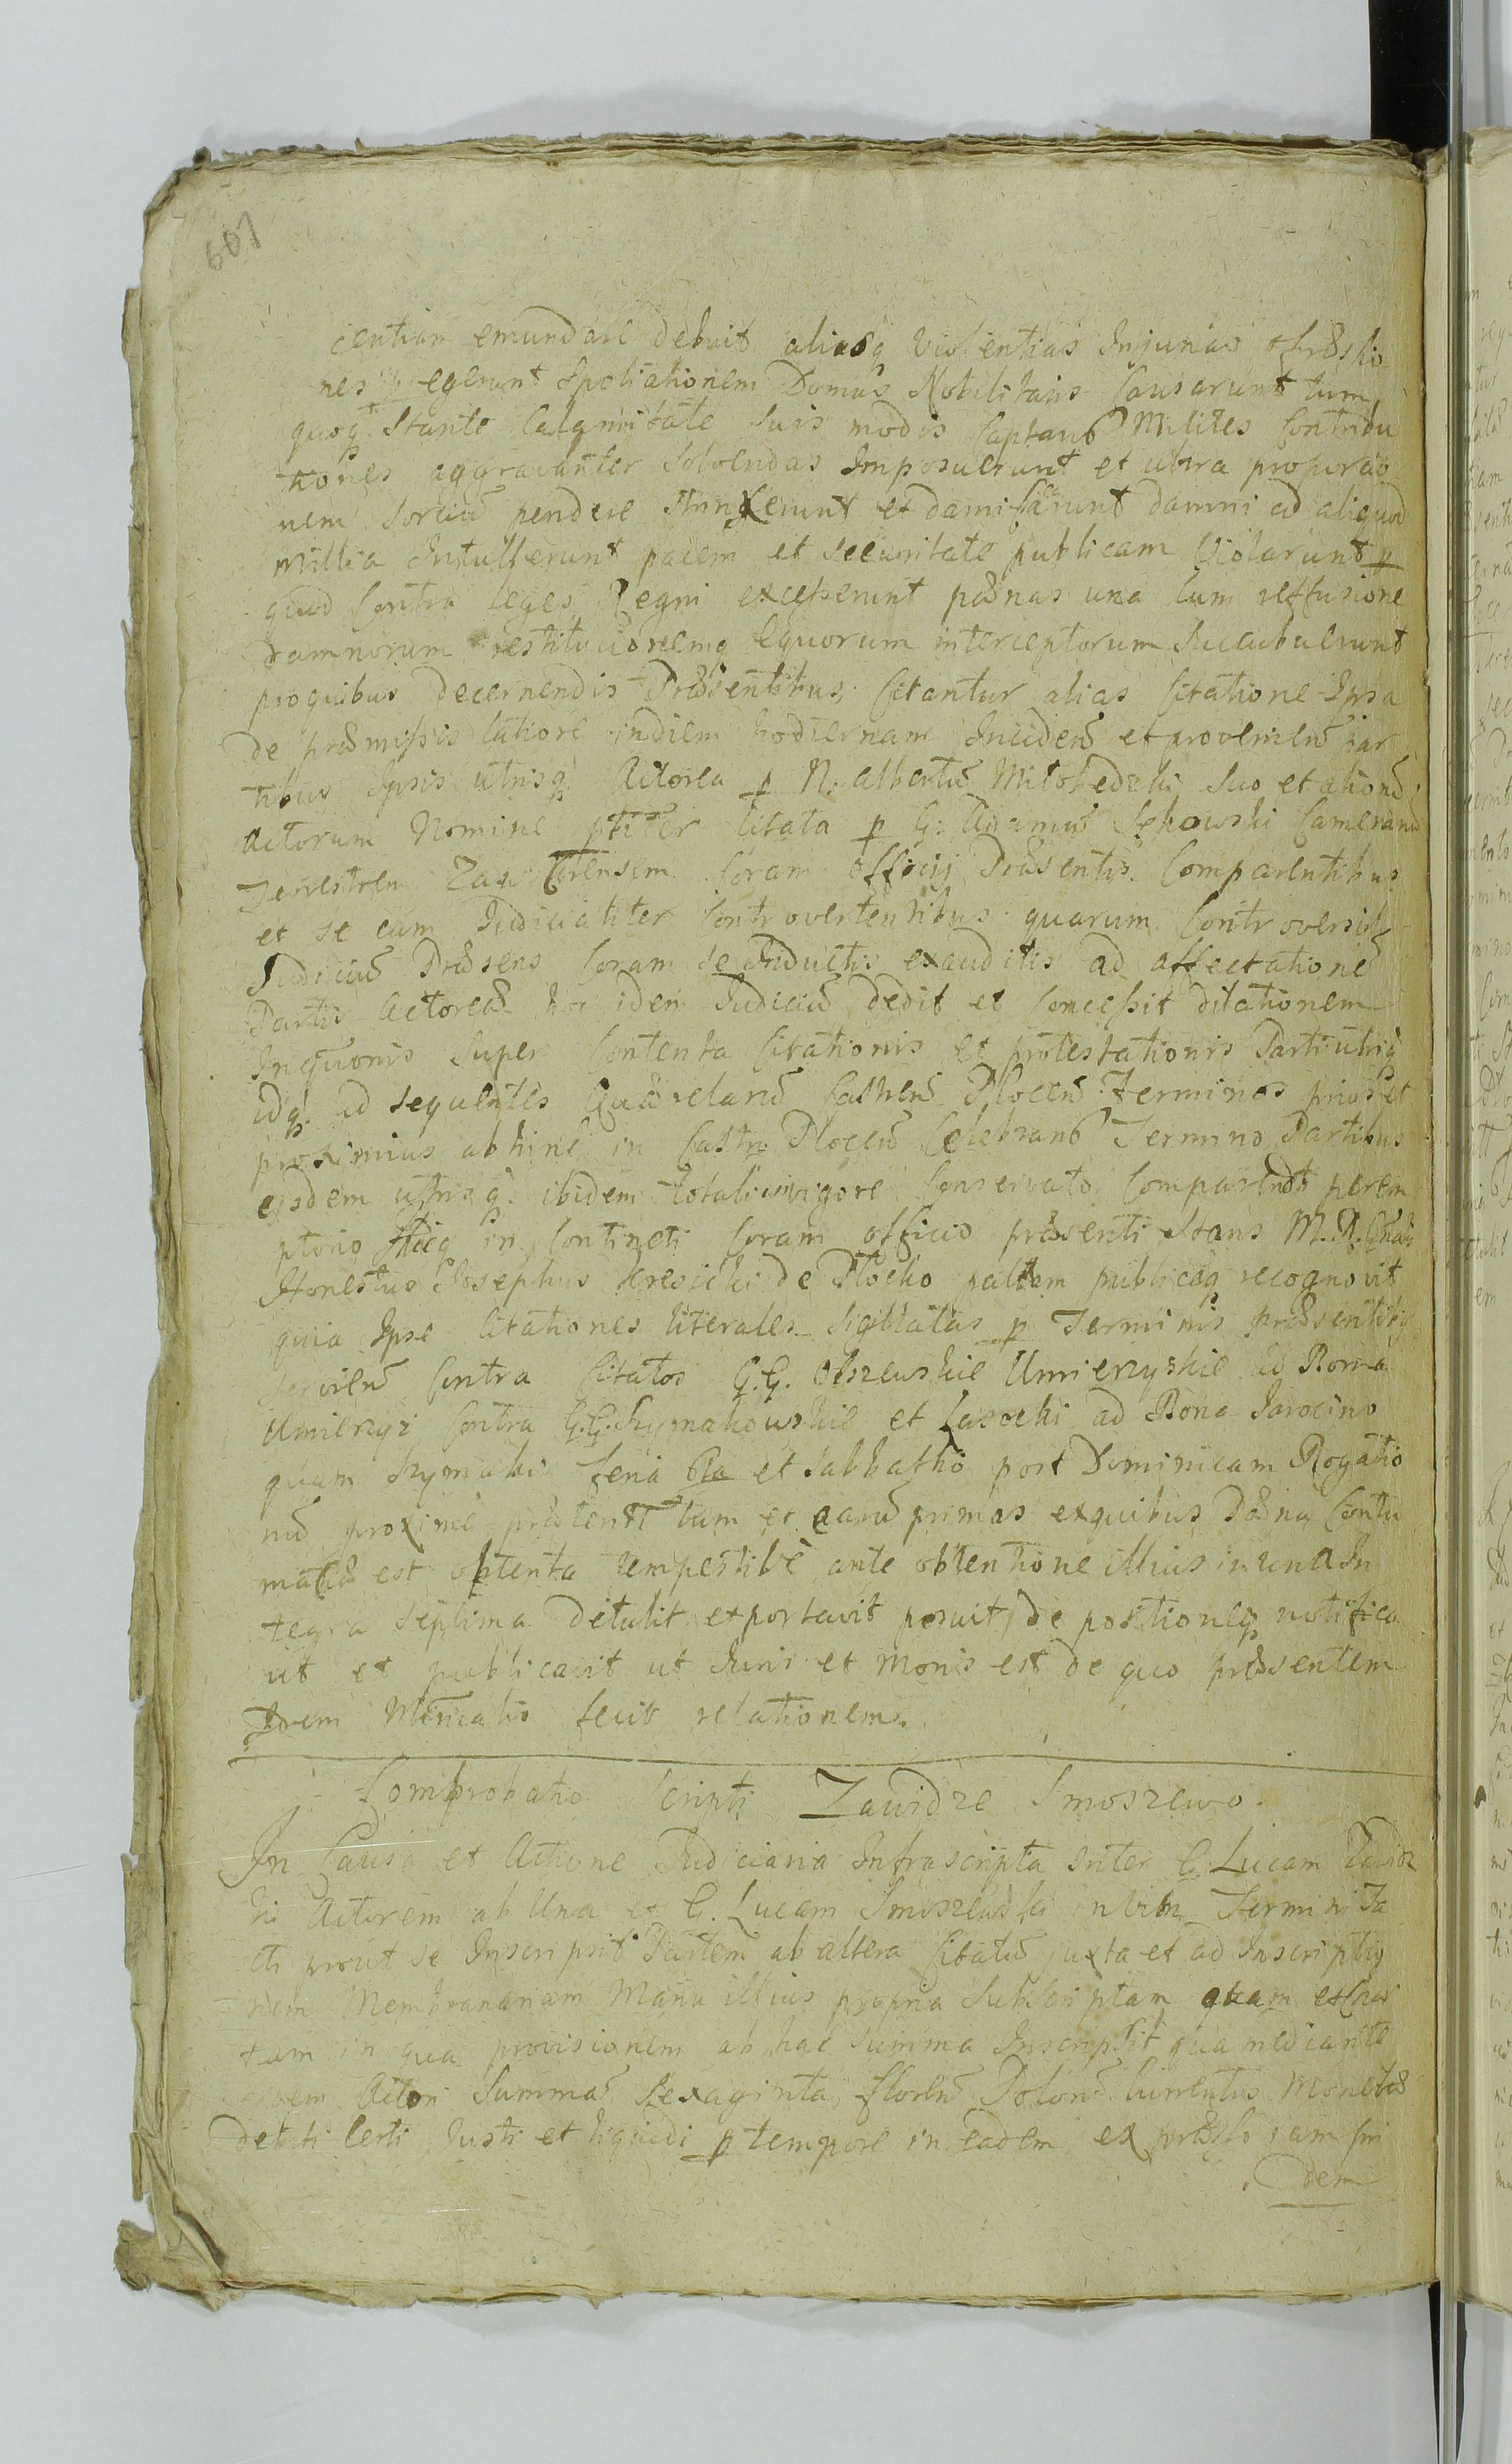 607
centiam emundare debuit aliasq violentias Injurias
nes p egerunt Spoliationem Domus Nobilitaris Causarunt tum
quoq. Stante Calamitate suis modis Captans Milites Contribu
tiones aggravanter Solvendas Imposuerunt et ultra proportio
nem pendere et damni ad aliquod
Millia Intullerunt pacem et securitate publicam Violarunt p
quod Contra leges Regni excesserunt pænas una cum reffusione
damnorum restitucionemq Equorum interceptorum Succubuerunt
proquibus decernendis Præsentibus Citantur alias Citatione Ipsa
de præmissis latiore indiem hodiernam Inciden et provenien par
tibus Ipsis utrisq Actorea p N. Albertū Milobedzki Suo et aliorū
Actorum Nomine ptiter Citata p G. Adamū Sękowski Camerariū
Terrestrem Zaw Coram Officij Præsentis Comparentibus
et se eam Judicialiter Controvertentibus quarum Controversijs
Judiciū Præsens Coram se Inductis exauditis ad affectationē
Partis Actoreæ hoc idem Judiciū dedit et Concessit dilationem
Inquonis Super Contenta Citationis et protestationis Parti utriq
idq ad sequentes Quærelarū Castren Plocen Terminos prius et
proximius abhinc in Castro Plocen Celebrans Termino Partibus
eisdem utrisq ibidem totali invigore Conservato Comparendi perem
ptorio in Continenti Coram officio præsenti Stans M. R. Gnalis
Honestus Josephus Kresicki de Plocko palam publiceq recognovit
quia Ipse Citationes literales Sigillatas p Terminis præsentibq
servien Contra Citatos G.G. Olszewskie Umierzyskie ad Bona
Umierzyż Contra G.G. Szymakowskie et Lasocki ad Bona Jarocino
quam Szymaki feria 6ta et Sabbatho post Dominicam Rogatio
nū proxime præterit tum et earū primas exquibus Pæna Contu
maciæ est obtenta tempestive ante obtentione illius in una In
tegra Septima detulit et portavit posuit de positioneq notifica
vit et publicavit ut Juris et Moris est de quo præsentem
Idem Minialis fecit relationem.
Comprobatio Scripti Zawidze Smoszewo.
In Causa et Actione Judiciaria Infrascripta Inter G. Lucam Zawidz
ki Actorem ab Una et G. Lucam Smoszewski invim Termini Ta
cti prout se Inscripsit Partem ab altera Citatū juxta et ad Inscriptio
nem Membrananam Manu illius propria Subscriptam
tam in qua provisionem ab hac Summa Inscripsit qua mediante
eidem Actori Summā Sexaginta floren Polon Currentis Monetæ
debiti Certi Justi et liquidi p tempore in eadem expresso jam pri
dem